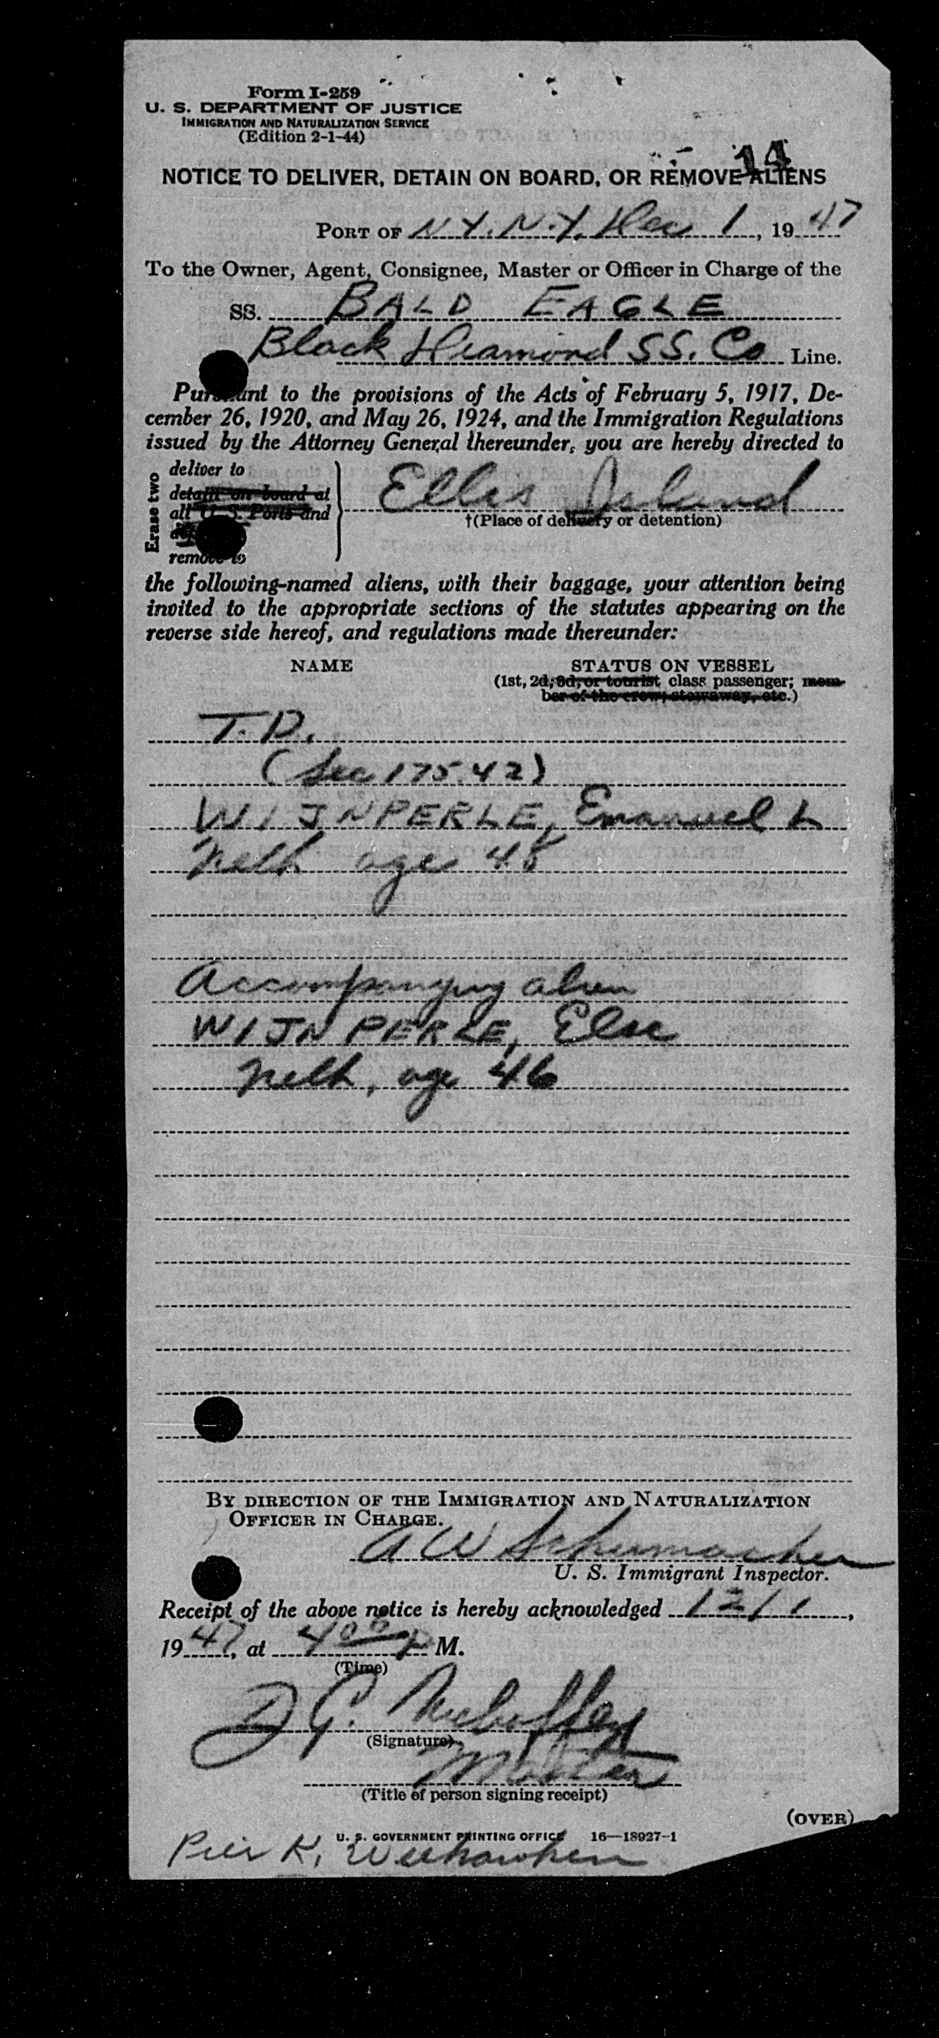 Form I-259
U. S. DEPARTMENT OF JUSTICE
IMMIGRATION AND NATURALIZATION SERVICE
(Edition 2-1-44)
14
NOTICE TO DELIVER, DETAIN ON BOARD, OR REMOVE ALIENS
PORT OF N.Y. N.Y. Dec 1, 1947
To the Owner, Agent, Consignee, Master or Officer in Charge of the
SS. BALD EAGLE
Black Diamond SS. Co Line.
Pursuant to the provisions of the Acts of February 5, 1917, De-
cember 26, 1920, and May 26, 1924, and the Immigration Regulations
issued by the Attorney General thereunder, you are hereby directed to
Erase two
deliver to
detain on board at
all U. S. Ports and
remove to
Ellis Island
†(Place of delivery or detention)
the following-named aliens, with their baggage, your attention being
invited to the appropriate sections of the statutes appearing on the
reverse side hereof, and regulations made thereunder:
NAME STATUS ON VESSEL
(1st, 2d, 3d, or tourist class passenger; mem-
ber of the crew; stowaway, etc.)
T.D.
(Sec 175.42)
WIJNPERLE, Emanuel L
Neth age 48
Accompanying alien
WIJNPERLE, Else
Neth, age 46
BY DIRECTION OF THE IMMIGRATION AND NATURALIZATION
OFFICER IN CHARGE.
A W Schumacher
U. S. Immigrant Inspector.
Receipt of the above notice is hereby acknowledged 12/1,
1947, at 4 00 P M.
(Time)
D G.
(Signature)
Master
(Title of person signing receipt)
(OVER)
U. S. GOVERNMENT PRINTING OFFICE 16—18927-1
Pier K, Weehawken